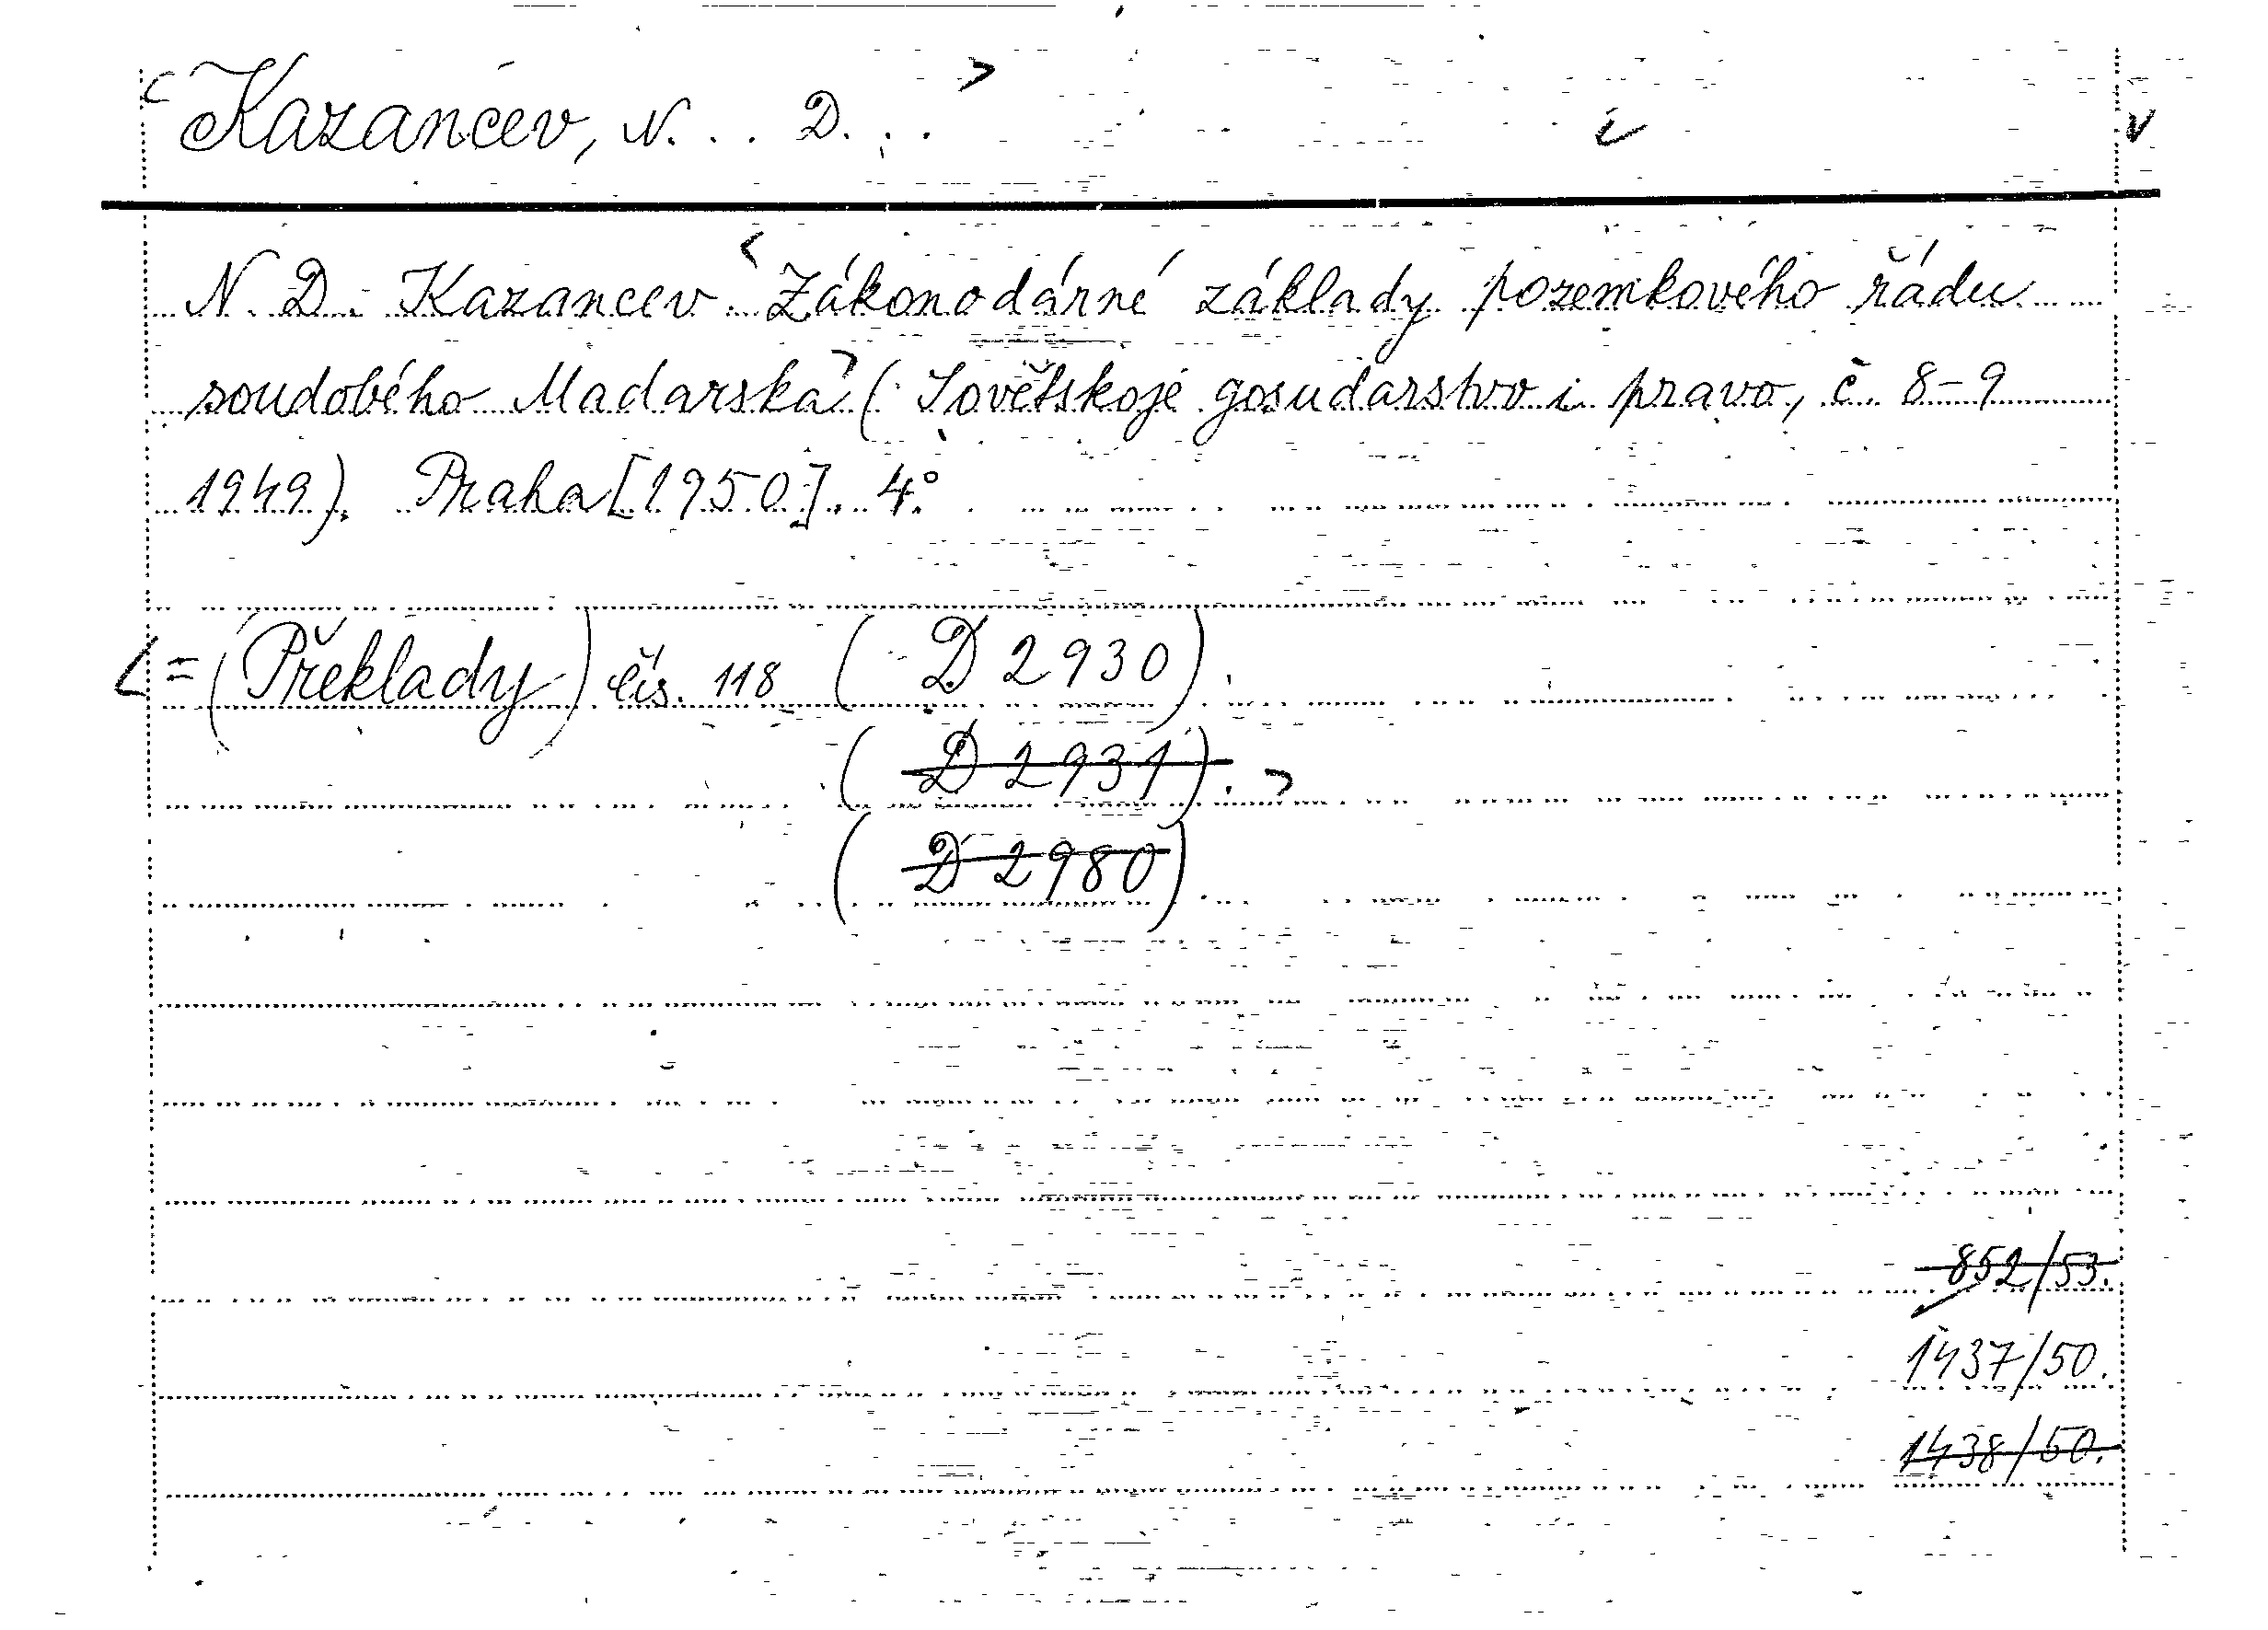 Kazancev, N. . . D. . .
N. D. Kazancev: Zákonodárné základy pozemkového řádu
soudobého Madarska (Sovětskoje gosudarstvo i pravo, č. 8-9
1949). Praha [1950]. 4°
= (Překlady) čís. 118 ( D 2930).
( D 2931).
( D 2980).
852/53.
1437/50.
1438/50.